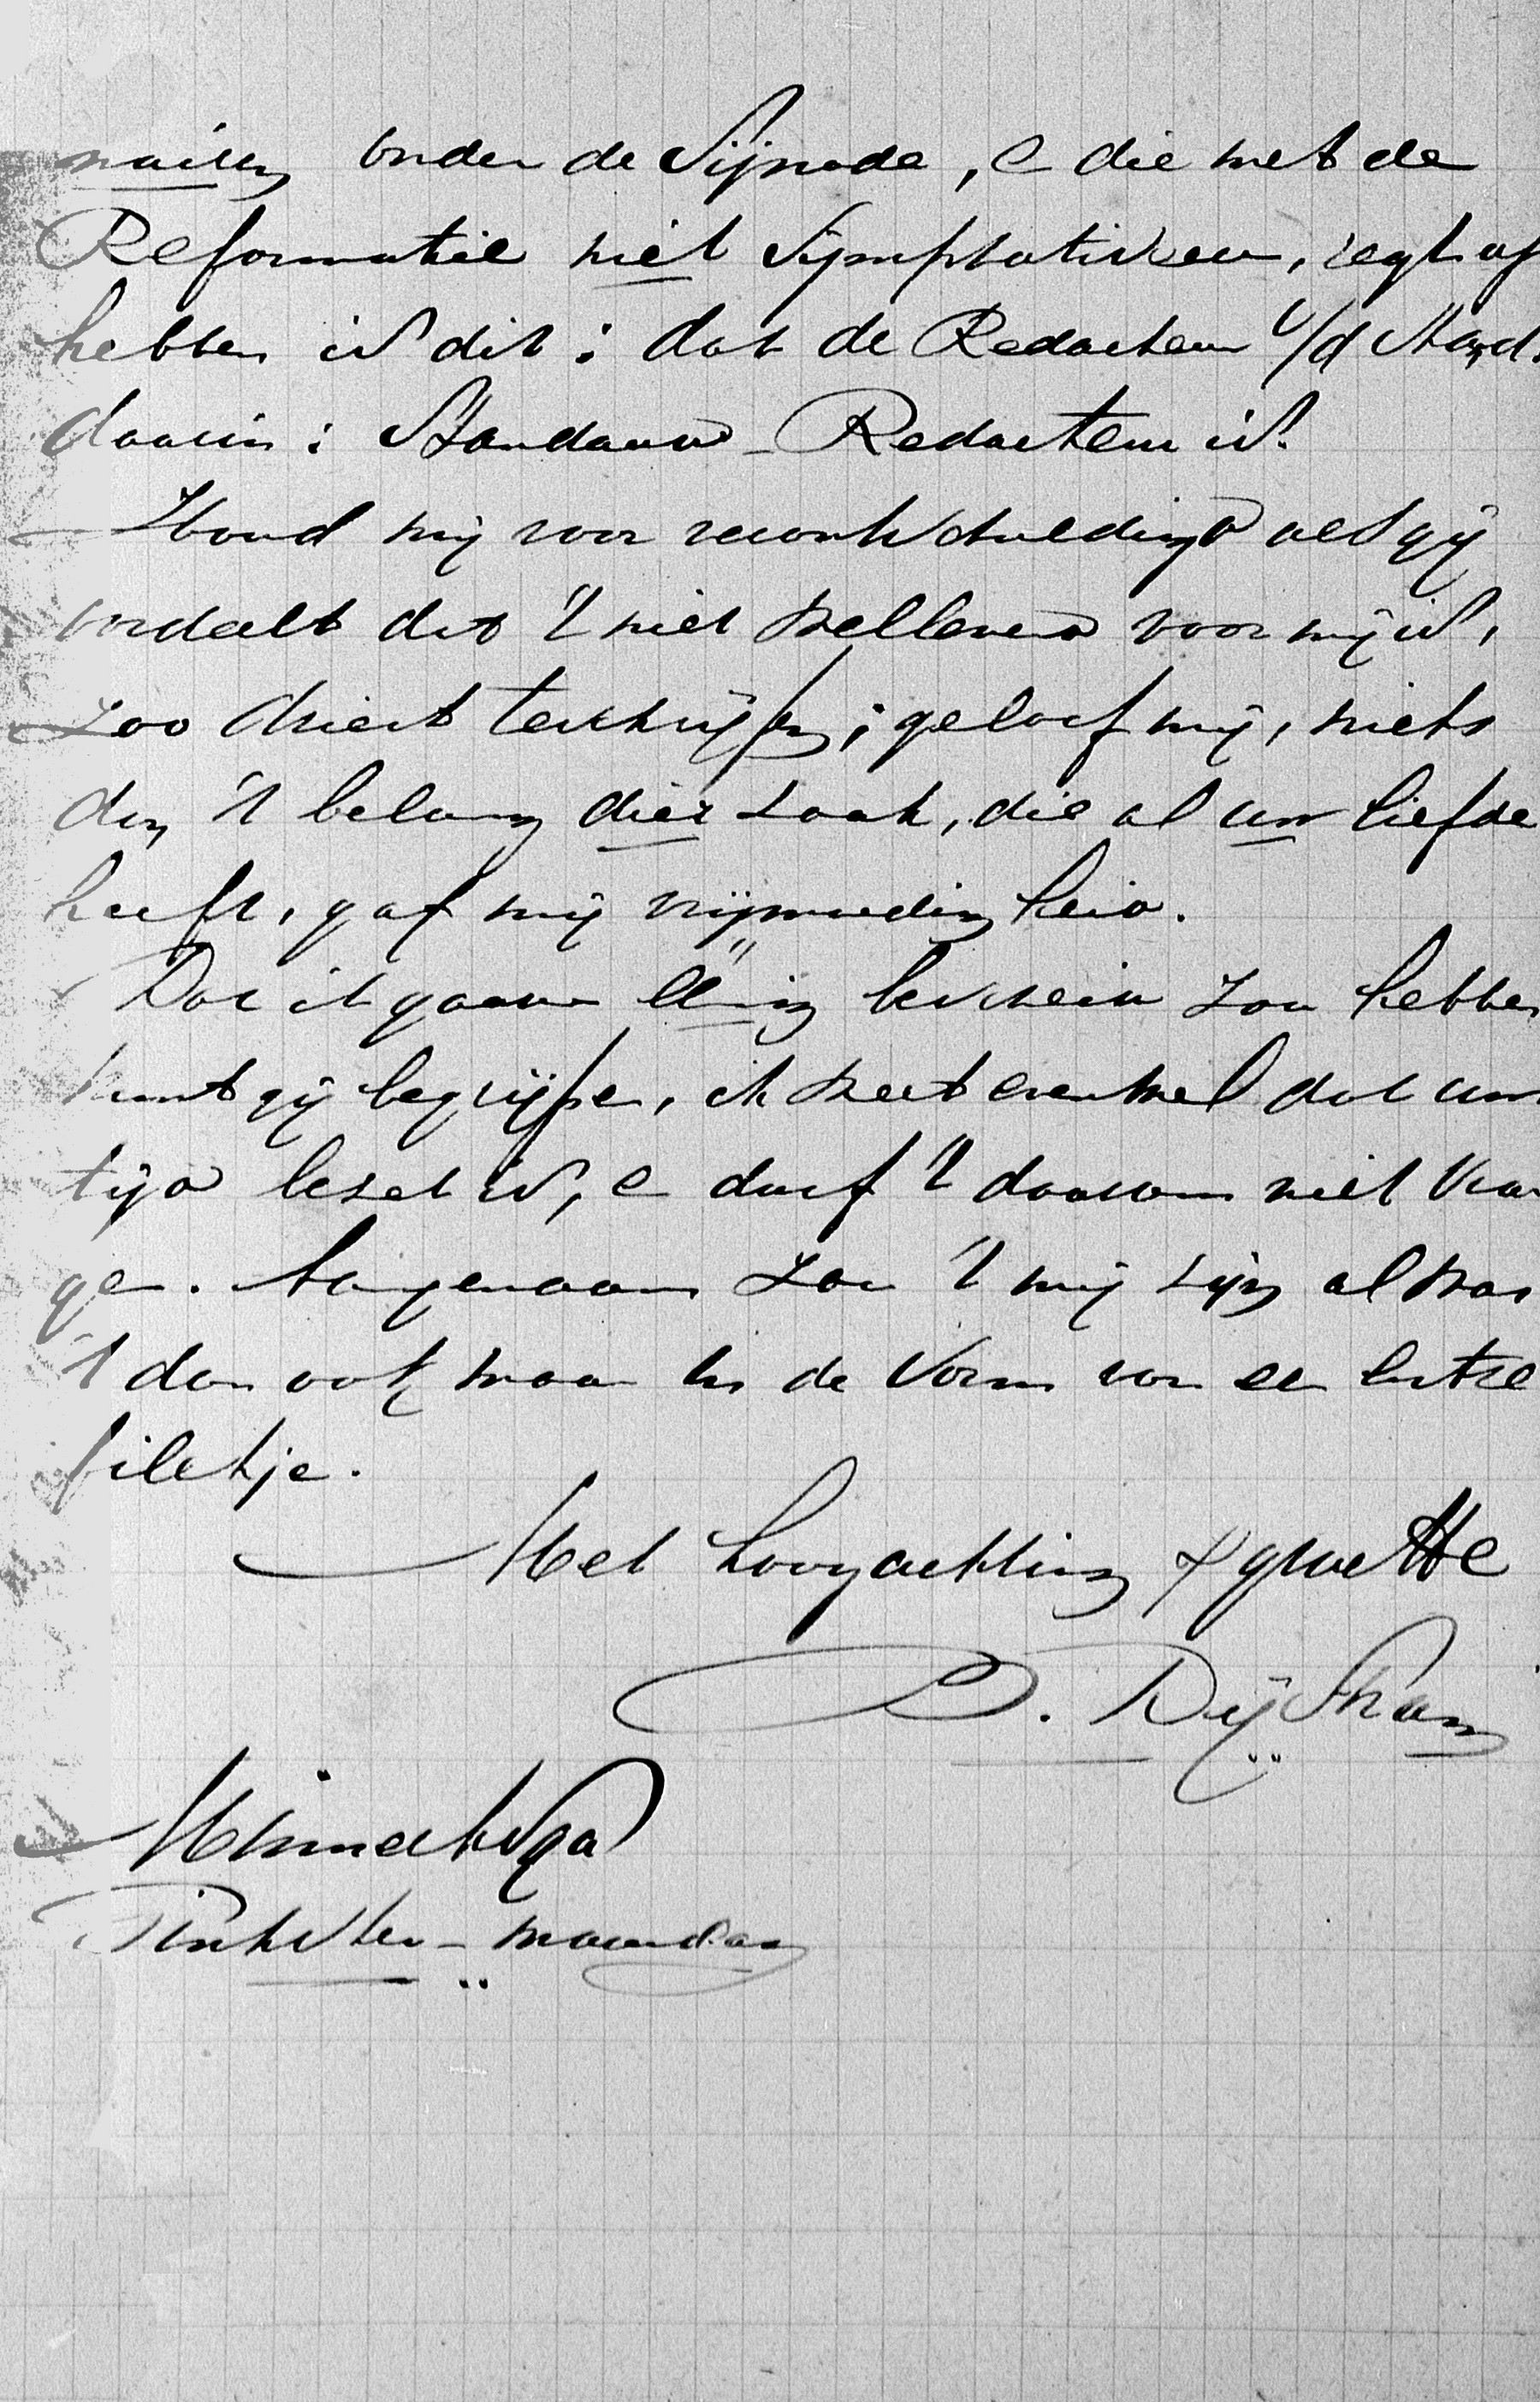 onder de Sijnode, e die met de
Reformatie niet Sijmphatiseren, regt op
hebben is dit: dat de Redacteur v/d Stand.
daarin: Standaard-Redacteur is.
Houd mij voor verontschuldigd als gij
oordeelt dat 't niet wellevend voor mij is,
zoo direct te schrijfen; geloof mij, niets
dan 't belang dier zaak, die al uw liefde
heeft, gaf mij vrijmoedigheid.
Dat ik gaarne eenig bescheid zou hebben
kunt gij begrijpen, ik weet evenwel dat uw
tijd bezet is, e durf 't daarom niet vra
gen. Aangenaam zou 't mij zijn al was
't dan ook maar in de vorm van een enkel
biletje.
Met hoogachting & groette
D. Dijkstra
Minnertsga
Pinkster-maandag